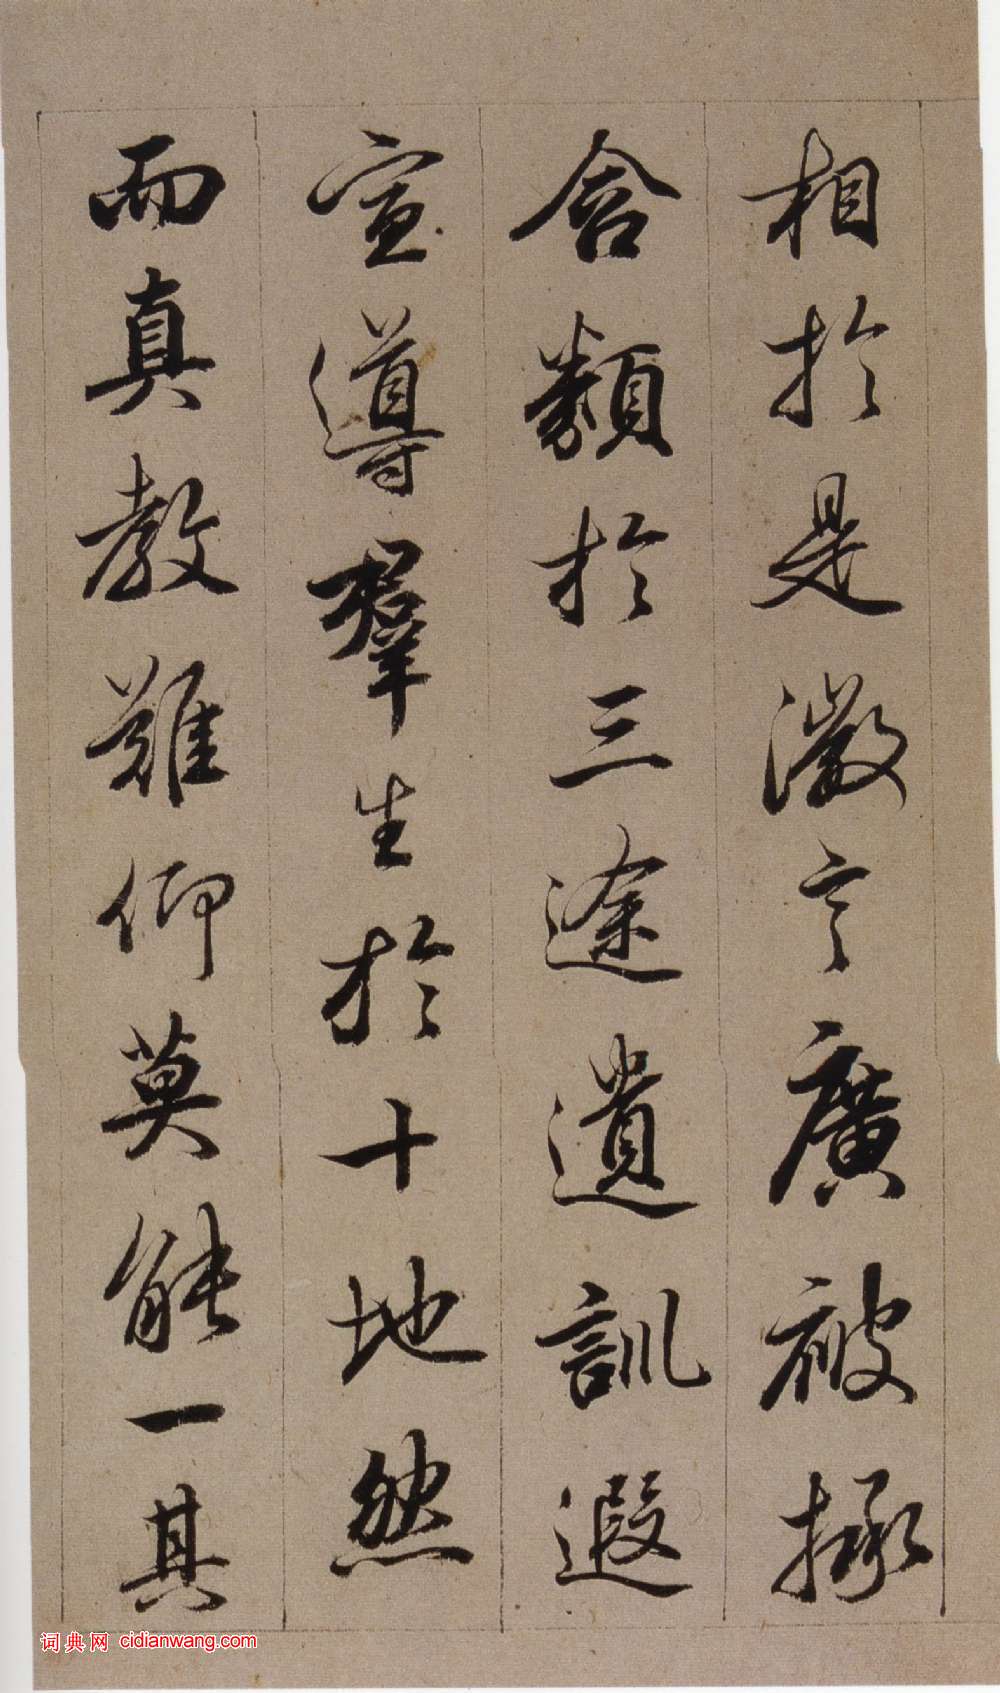 相於是微言廣被拯
含類於三途遺訓遐
宣導羣生於十地然
而真教難仰莫能一其
词典网 cidianwang.com